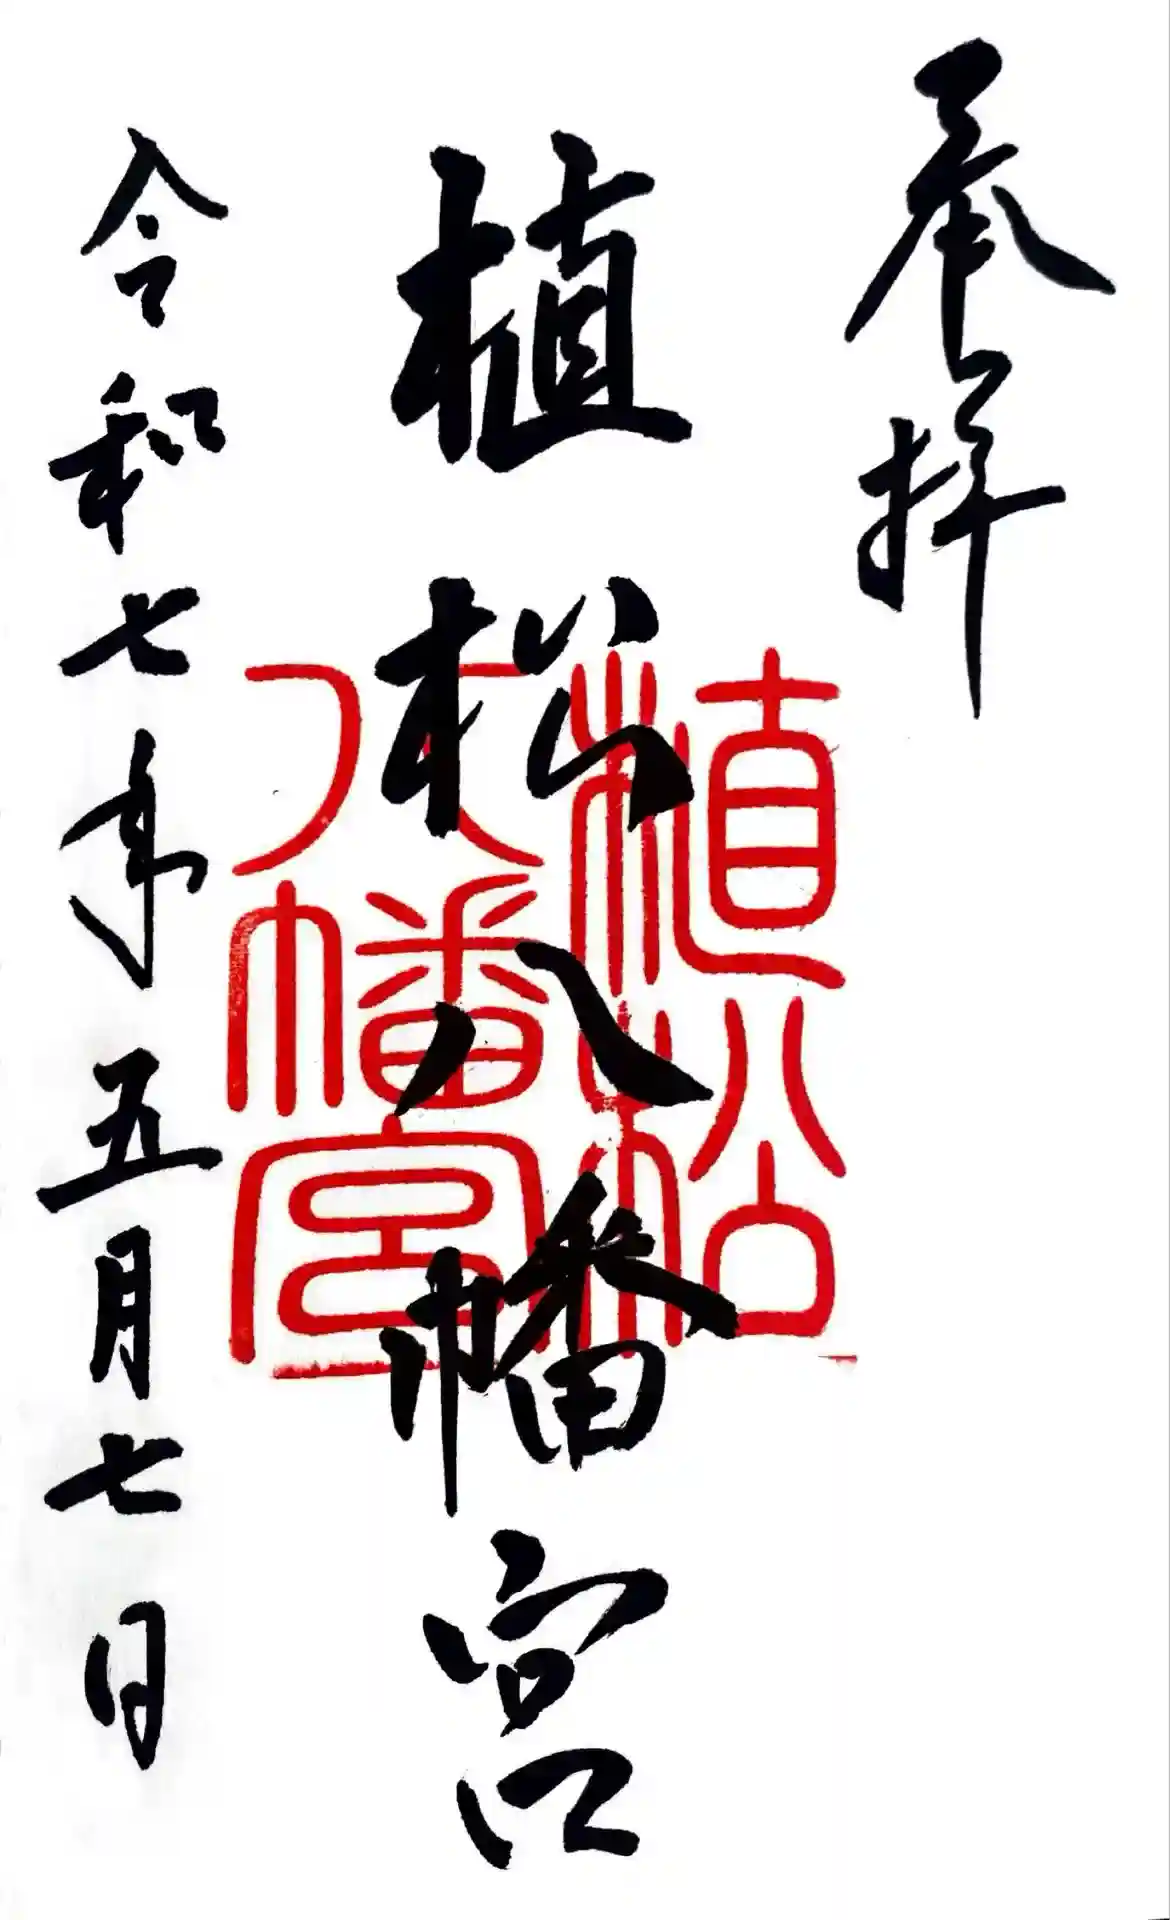 奉拝
植松八幡宮
令和七年五月七日
植松
八幡宮